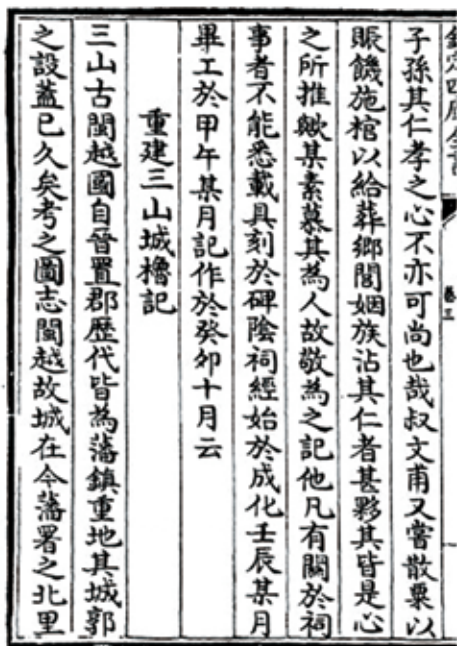 欽定四庫全書
卷三
子孫其仁孝之心不亦可尚也哉叔文甫又嘗散粟以
賑饑施棺以給葬鄉閭姻族沾其仁者甚夥其皆是心
之所推歟某素慕其為人故敬為之記他凡有關於祠
事者不能悉載具刻於碑陰祠經始於成化壬辰某月
畢工於甲午某月記作於癸卯十月云
重建三山城櫓記
三山古閩越國自晉置郡歷代皆為藩鎮重地其城郭
之設蓋已久矣考之圖志閩越故城在今藩署之北里